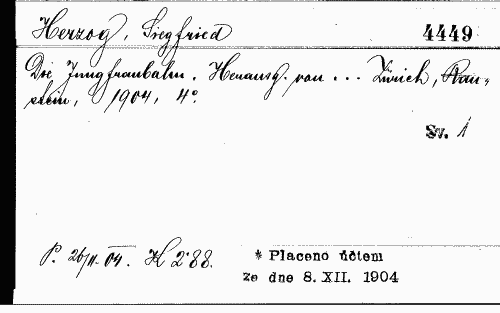 Herzog, Siegfried
4449
Die Jungfraubahn. Herausg. von ... Zürich, Rau-
stein, 1904, 4°.
Sv. 1
P. 26/XI. 04. K 2·88.
* Placeno účtem
ze dne 8. XII. 1904